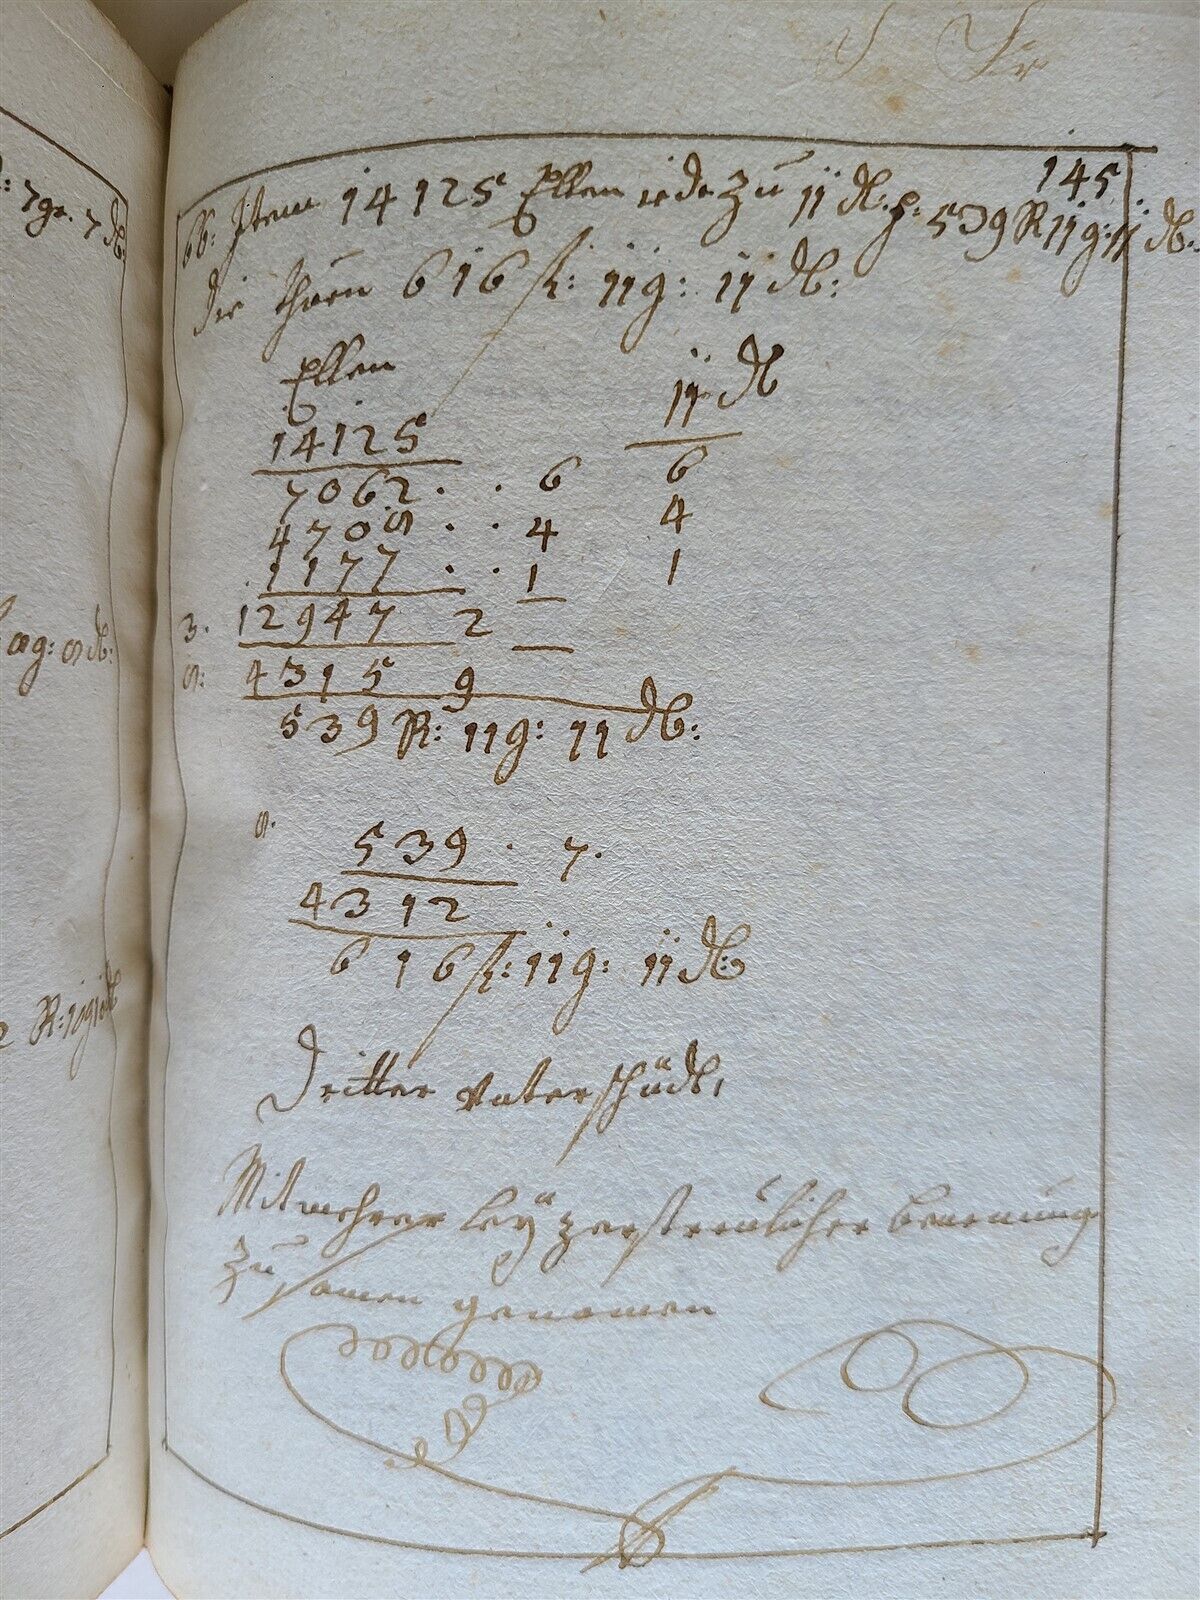 145
66: Item 14125 Ellen iede zu 11 d. f: 539 R 11 g: 11 d:
die thuen 616 fl: 11 g: 11 d:
Ellen
14125
11 d
7062 . . 6
6
4708 . . 4
4
1177 . . 1
1
3. 12947 2
8: 4315 9
539 R: 11 g: 11 d:
8.
539 . 7.
4312
616 fl: 11 g: 11 d:
Dritter Unterschüdt,
Mit mehrer leÿ zerstreulicher benennung
zu samen genomen
: 7 gr. 7 d
g: 8 d:
R: